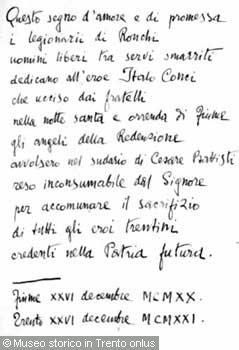 Questo segno d'amore e di promessa
i legionarii di Ronchi
uomini liberi tra servi smarriti
dedicano all'eroe Italo Conci
che ucciso dai fratelli
nella notte santa e orrenda di Fiume
gli angeli della Redenzione
avvolsero nel sudario di Cesare Battisti
reso inconsumabile dal Signore
per accomunare il sacrifizio
di tutti gli eroi trentini
credenti nella Patria futura.
Fiume XXVI decembre MCMXX.
Trento XXVI decembre MCMXXI.
© Museo storico in Trento onlus